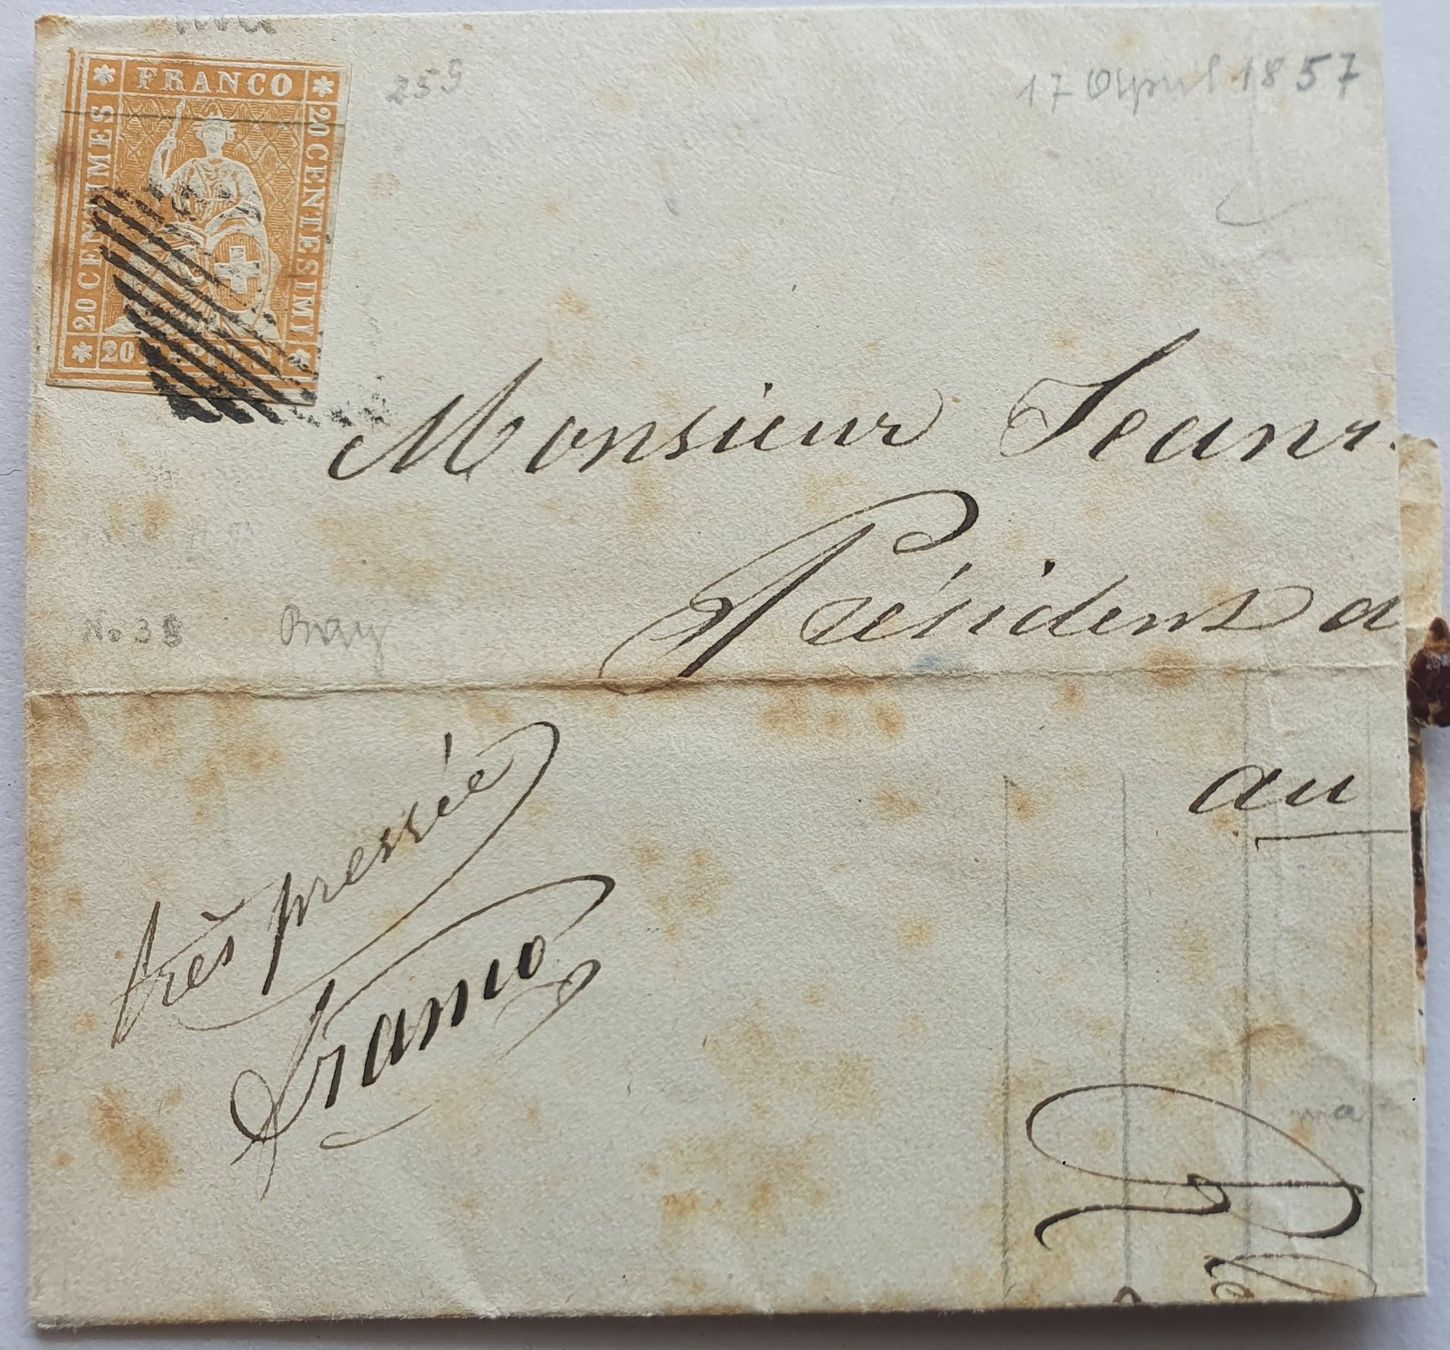 FRANCO
20 CENTIMES
20 CENTESIMI
20
17 April 1857
Monsieur Jean
Président d
No 38
au
très pressée
franco